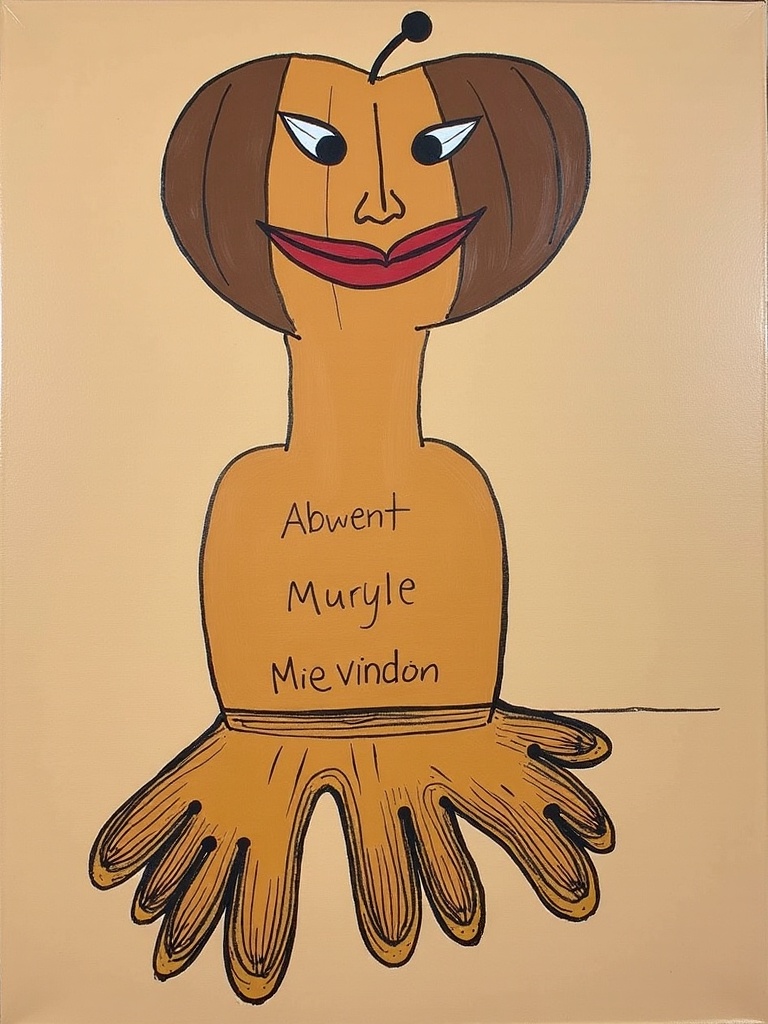 Abwent
Muryle
Mie vindon